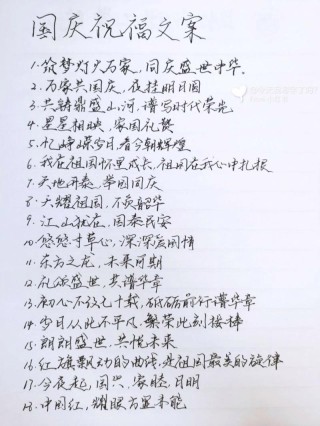 国庆祝福文案
1.筑梦灯火万家,同庆盛世中华.
2.万家共国庆,夜挂明月圆
3.共铸鼎盛山河,谱写时代荣光
4.星星相映,家国礼赞
5.忆峥嵘岁月,看今朝辉煌
6.我在祖国怀里成长,祖国在我心中扎根
7.天地开泰,举国同庆
8.光耀祖国,不负韶华
9.江山犹在,国泰民安
10.悠悠寸草心,深深爱国情
11.东方之龙,未来可期
12.礼颂盛世,共谱华章
13.初心不改七十载,砥砺前行谱华章
14.岁月从此不平凡,繁荣此刻接棒
15.朗朗盛世,共悦未来
16.红旗飘动的曲线,是祖国最美的旋律
17.今夜起,国兴,家睦,月明
18.中国红,耀眼方显本能